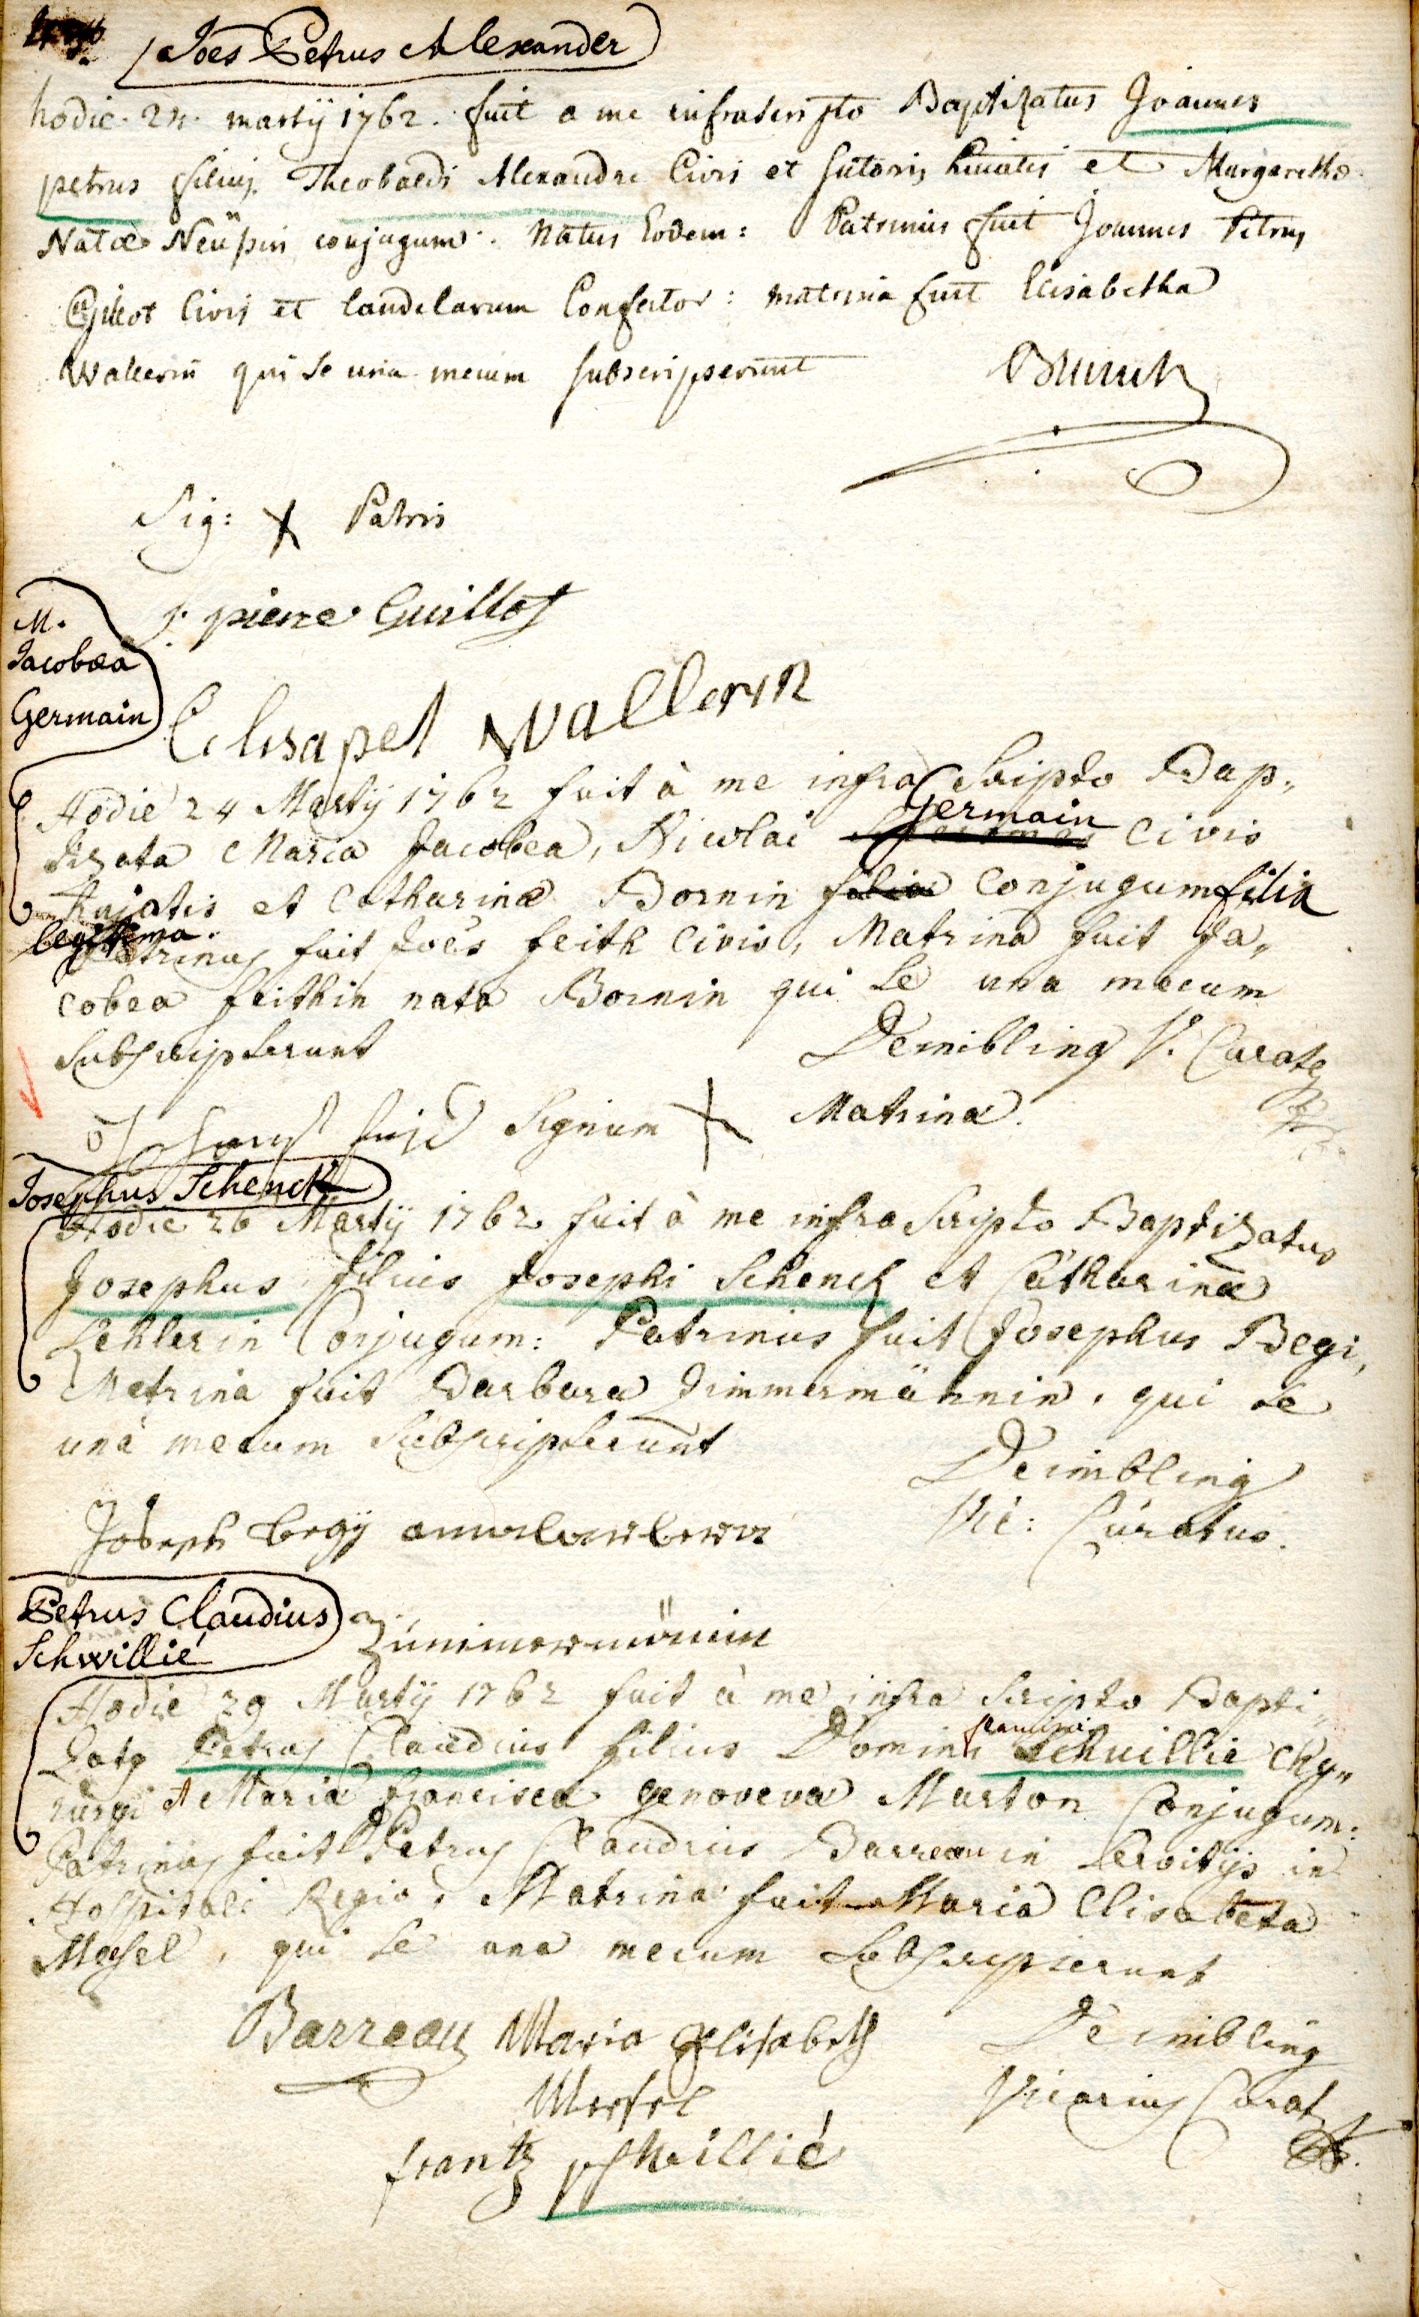 Joes Petrus Alexander
hodie 24 martÿ 1762. fuit a me infrascripto Baptizatus Joannes
petrus filius Theobaldi Alexandre Civis et sutoris huiatis et Margarethæ
Natæ Neüpin conjugum. Natus Eodem: Patrinus fuit Joannes Petrus
Civis et Candelarum Confector: matrina fuit Elisabetha
Wallerin qui se una mecum subscripserunt
Sig: X Patris
M.
Jacobæa
Germain
J. pierre Guillot
Elisapet Wallerin
Hodie 24 Martÿ 1762 fuit à me infra Scripto Bap„
tizata Maria Jacobea, Nicolai Germain Civis
hujatis et Catharinæ Bornin filia Conjugum filia
legitima.
Patrinus fuit Joês feith Civis, Matrina fuit Ja„
cobea feithin nata Bornin qui se una mecum
Subscripserunt Deimbling V. Curatq
Signum X Matrinæ.
Josephus Schenck
Hodie 26 Martÿ 1762 fuit à me infra Scripto Baptizatus
Josephus filius Josephi Schenck et Catharinæ
Lehlerin Conjugum: Patrinus fuit Josephus Begi,
Matrina fuit Barbara Zimmermännin, qui se
unà mecum Subscripserunt Deimbling
Vic: Curatus.
Joseph begÿ
Petrus Claudius
Schwillié
Zümmermänin
Hodie 29 Martÿ 1762 fuit à me infra Scripto Bapti„
Zatq Petrus Claudius filius Domini francisci Schuillie Chy„
rurgi et Maria francisca genoveva Marton Conjugum:
Patrinus fuit Petrus Claudius Barreau in Servitijs in
Hospitali Regio, Matrina fuit Maria Elisabeta
Mersel, qui se una mecum Subscripserunt
Barreau Maria Elisabeth Deimbling
Mersel Vicarius Curatq
frantz schwillié